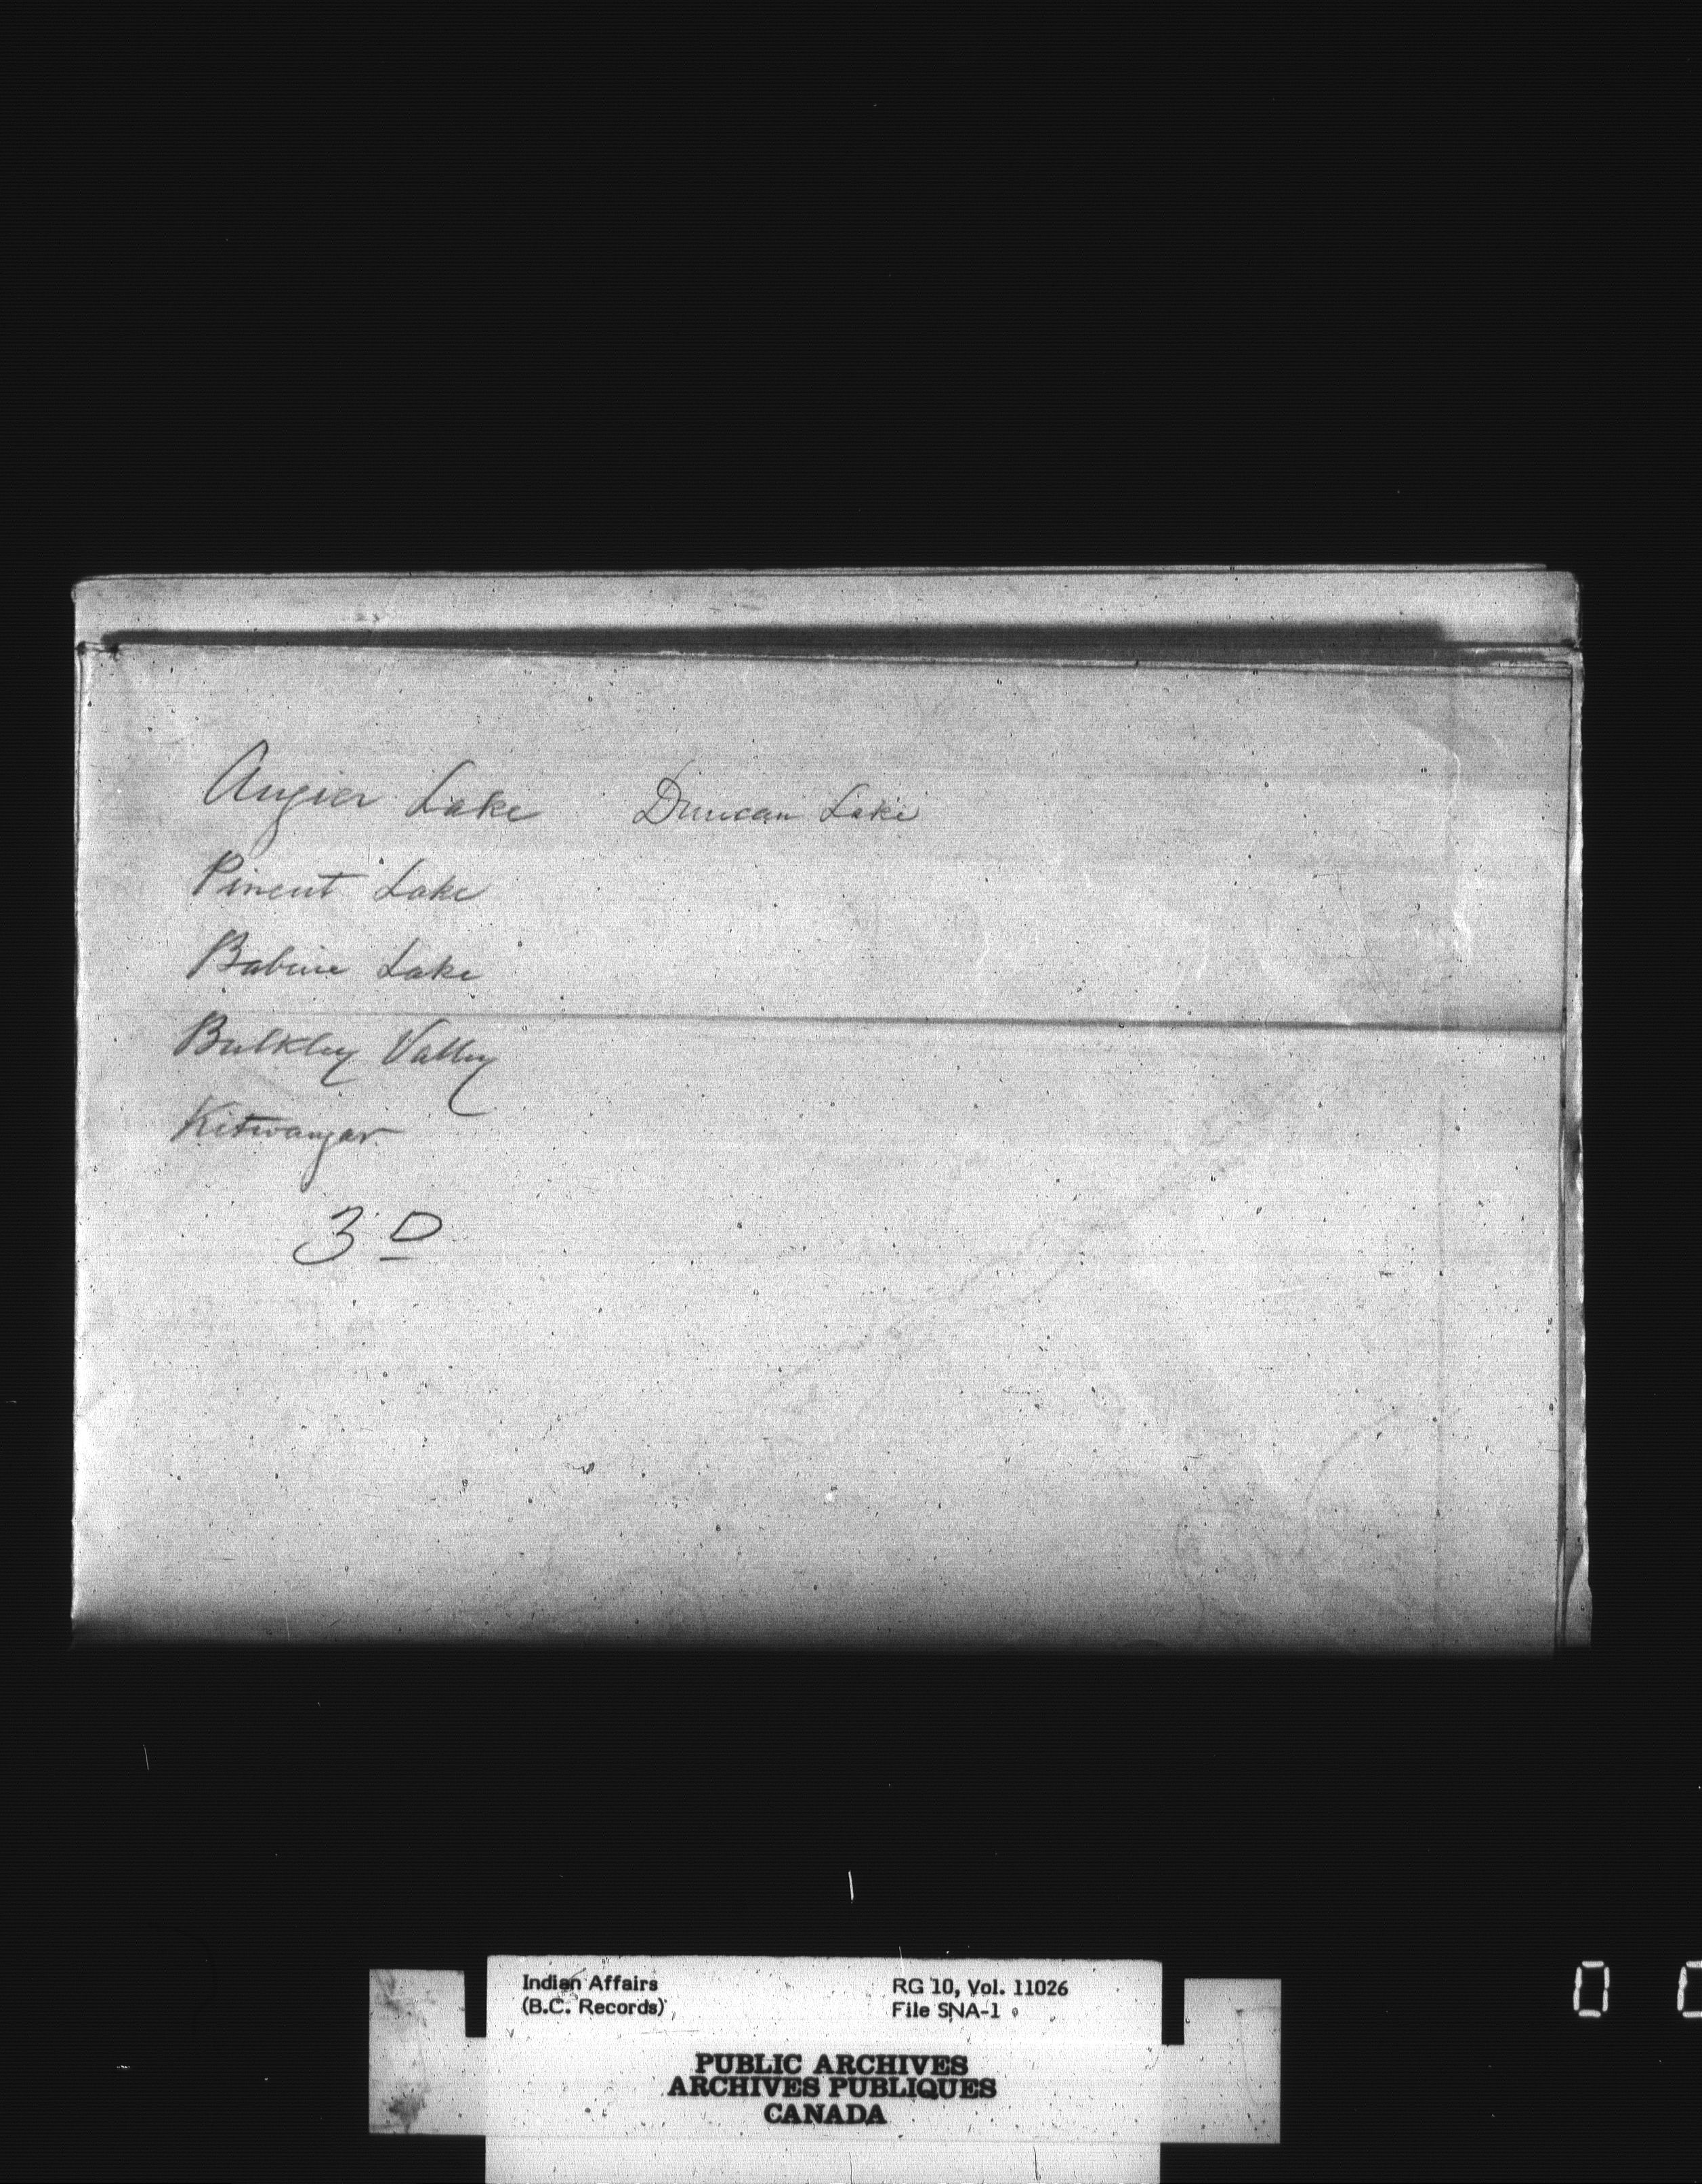 Augier Lake Duncan Lake
Pincut Lake
Babine Lake
Bulkley Valley
Kitwangar
3 D
Indian Affairs RG 10, Vol. 11026
(B.C. Records) File SNA-1
PUBLIC ARCHIVES
ARCHIVES PUBLIQUES
CANADA
0